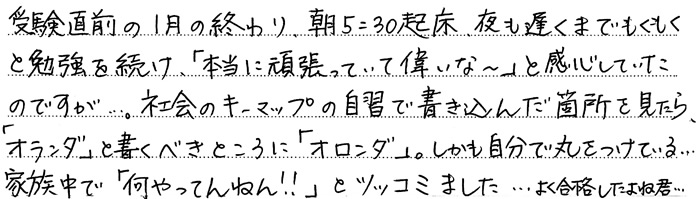 受験直前の1月の終わり、朝5:30起床、夜も遅くまでもくもく
と勉強を続け、「本当に頑張っていて偉いな〜」と感心していた
のですが…。社会のキーマップの自習で書き込んだ箇所を見たら、
「オランダ」と書くべきところに「オロンダ」。しかも自分で丸をつけている…
家族中で「何やってんねん!!」とツッコミました…よく合格したよね君…